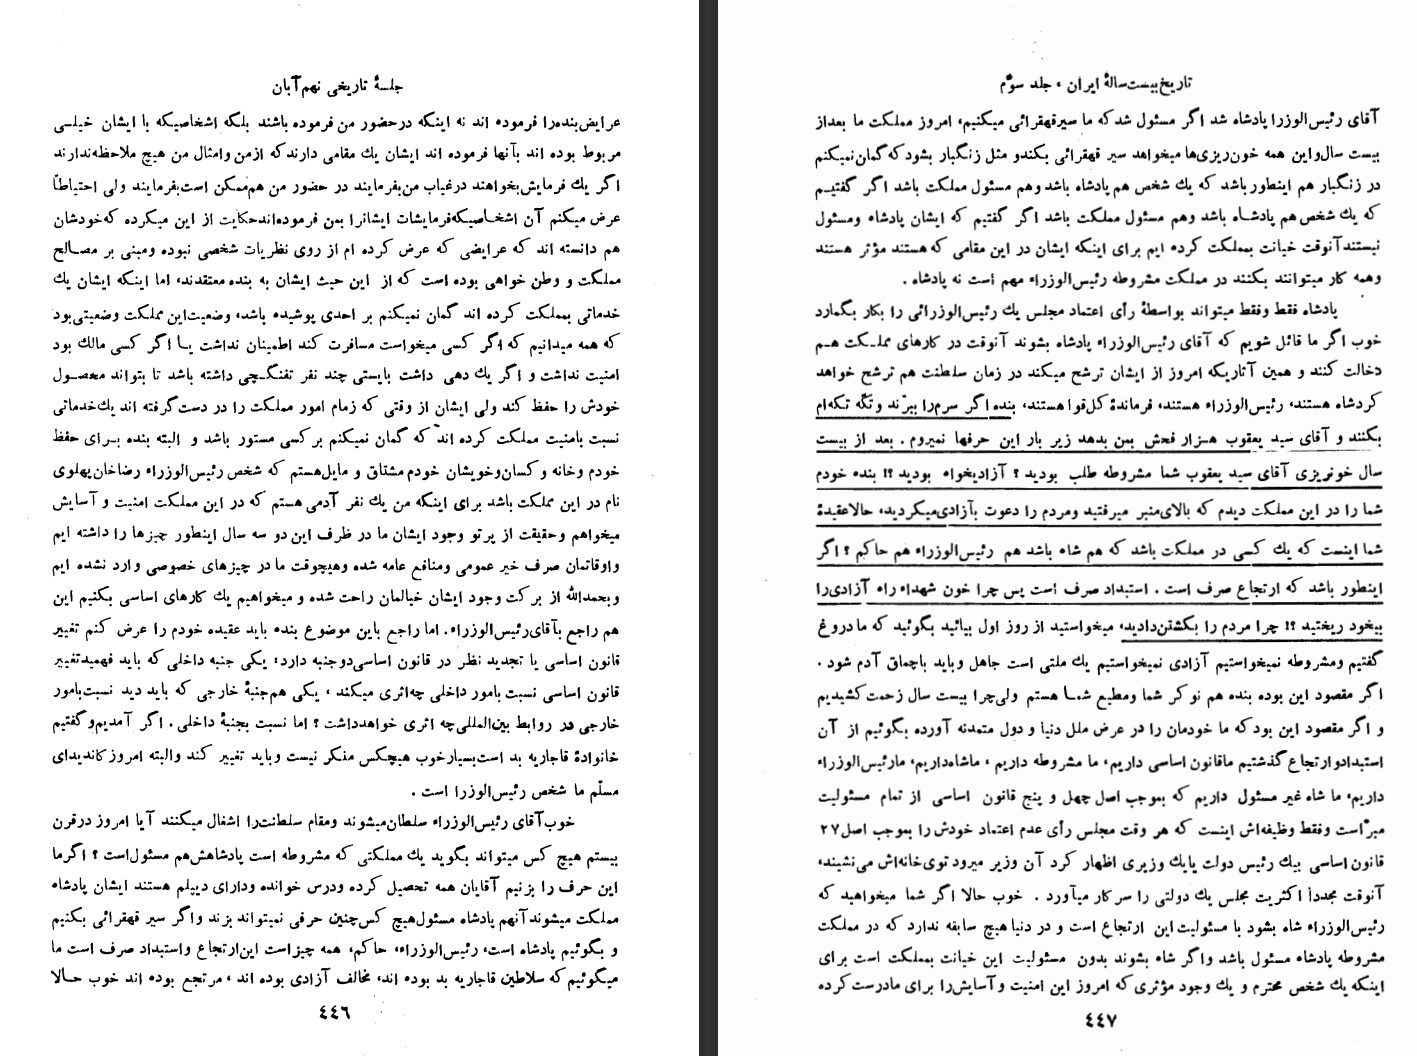 جلسهٔ تاریخی نهم آبان
عرایض بنده را فرموده اند نه اینکه در حضور من فرموده باشند بلکه اشخاصیکه با ایشان خیلی
مربوط بوده اند بآنها فرموده اند ایشان یك مقامی دارند که از من و امثال من هیچ ملاحظه ندارند
اگر یك فرمایش بخواهند در غیاب من بفرمایند در حضور من هم ممکن است بفرمایند ولی احتیاطاً
عرض میکنم آن اشخاصیکه فرمایشات ایشانرا بمن فرموده اند حکایت از این میکرده که خودشان
هم دانسته اند که عرایضی که عرض کرده ام از روی نظریات شخصی نبوده و مبنی بر مصالح
مملکت و وطن خواهی بوده است که از این حیث ایشان به بنده معتقدند، اما اینکه ایشان یك
خدماتی بمملکت کرده اند گمان نمیکنم بر احدی پوشیده باشد، وضعیت این مملکت وضعیتی بود
که همه میدانیم که اگر کسی میخواست مسافرت کند اطمینان نداشت یا اگر کسی مالك بود
امنیت نداشت و اگر یك دهی داشت بایستی چند نفر تفنگچی داشته باشد تا بتواند محصول
خودش را حفظ کند ولی ایشان از وقتی که زمام امور مملکت را در دست گرفته اند یك خدماتی
نسبت بامنیت مملکت کرده اند که گمان نمیکنم بر کسی مستور باشد و البته بنده برای حفظ
خودم و خانه و کسان و خویشان خودم مشتاق و مایل هستم که شخص رئیس الوزراء رضاخان پهلوی
نام در این مملکت باشد برای اینکه من یك نفر آدمی هستم که در این مملکت امنیت و آسایش
میخواهم و حقیقت از پرتو وجود ایشان ما در ظرف این دو سه سال اینطور چیزها را داشته ایم
و اوقاتمان صرف خیر عمومی و منافع عامه شده و هیچوقت ما در چیزهای خصوصی وارد نشده ایم
و بحمدالله از برکت وجود ایشان خیالمان راحت شده و میخواهیم یك کارهای اساسی بکنیم این
هم راجع بآقای رئیس الوزراء. اما راجع باین موضوع بنده باید عقیده خودم را عرض کنم تغییر
قانون اساسی یا تجدید نظر در قانون اساسی دو جنبه دارد: یکی جنبه داخلی که باید فهمید تغییر
قانون اساسی نسبت بامور داخلی چه اثری میکند، یکی هم جنبهٔ خارجی که باید دید نسبت بامور
خارجی در روابط بین المللی چه اثری خواهد داشت؟ اما نسبت بجنبهٔ داخلی. اگر آمدیم و گفتیم
خانوادهٔ قاجاریه بد است بسیار خوب هیچکس منکر نیست و باید تغییر کند و البته امروز کاندیدای
مسلّم ما شخص رئیس الوزرا است .
خوب آقای رئیس الوزراء سلطان میشوند و مقام سلطنت را اشغال میکنند آیا امروز در قرن
بیستم هیچ کس میتواند بگوید یك مملکتی که مشروطه است پادشاهش هم مسئول است؟ اگر ما
این حرف را بزنیم آقایان همه تحصیل کرده و درس خوانده و دارای دیپلم هستند ایشان پادشاه
مملکت میشوند آنهم پادشاه مسئول هیچ کس چنین حرفی نمیتواند بزند و اگر سیر قهقرائی بکنیم
و بگوئیم پادشاه است، رئیس الوزراء، حاکم، همه چیز است این ارتجاع و استبداد صرف است ما
میگوئیم که سلاطین قاجاریه بد بوده اند، مخالف آزادی بوده اند، مرتجع بوده اند خوب حالا
٤٤٦
تاریخ بیست سالهٔ ایران ، جلد سوّم
آقای رئیس الوزرا پادشاه شد اگر مسئول شد که ما سیر قهقرائی میکنیم، امروز مملکت ما بعد از
بیست سال و این همه خون ریزی ها میخواهد سیر قهقرائی بکند و مثل زنگبار بشود که گمان نمیکنم
در زنگبار هم اینطور باشد که یك شخص هم پادشاه باشد و هم مسئول مملکت باشد اگر گفتیم
که یك شخص هم پادشاه باشد و هم مسئول مملکت باشد اگر گفتیم که ایشان پادشاه و مسئول
نیستند آنوقت خیانت بمملکت کرده ایم برای اینکه ایشان در این مقامی که هستند مؤثر هستند
و همه کار میتوانند بکنند در مملکت مشروطه رئیس الوزراء مهم است نه پادشاه .
پادشاه فقط و فقط میتواند بواسطهٔ رأی اعتماد مجلس یك رئیس الوزرائی را بکار بگمارد
خوب اگر ما قائل شویم که آقای رئیس الوزراء پادشاه بشوند آنوقت در کارهای مملکت هم
دخالت کنند و همین آثاریکه امروز از ایشان ترشح میکند در زمان سلطنت هم ترشح خواهد
کرد شاه هستند، رئیس الوزراء هستند، فرماندهٔ کل قوا هستند، بنده اگر سرم را ببرّند و تکّه تکه ام
بکنند و آقای سید یعقوب هزار فحش بمن بدهد زیر بار این حرفها نمیروم. بعد از بیست
سال خونریزی آقای سید یعقوب شما مشروطه طلب بودید؟ آزادیخواه بودید؟! بنده خودم
شما را در این مملکت دیدم که بالای منبر میرفتید و مردم را دعوت بآزادی میکردید، حالا عقیدهٔ
شما اینست که یك کسی در مملکت باشد که هم شاه باشد هم رئیس الوزراء هم حاکم؟ اگر
اینطور باشد که ارتجاع صرف است. استبداد صرف است پس چرا خون شهداء راه آزادی را
بیخود ریختید؟! چرا مردم را بکشتن دادید، میخواستید از روز اول بیائید بگوئید که ما دروغ
گفتیم و مشروطه نمیخواستیم آزادی نمیخواستیم یك ملتی است جاهل و باید با چماق آدم شود .
اگر مقصود این بوده بنده هم نوکر شما و مطیع شما هستم ولی چرا بیست سال زحمت کشیدیم
و اگر مقصود این بود که ما خودمان را در عرض ملل دنیا و دول متمدنه آورده بگوئیم از آن
استبداد و ارتجاع گذشتیم ما قانون اساسی داریم، ما مشروطه داریم، ما شاه داریم، ما رئیس الوزراء
داریم، ما شاه غیر مسئول داریم که بموجب اصل چهل و پنج قانون اساسی از تمام مسئولیت
مبرّاست و فقط وظیفه اش اینست که هر وقت مجلس رأی عدم اعتماد خودش را بموجب اصل ٢٧
قانون اساسی بیك رئیس دولت یا یك وزیری اظهار کرد آن وزیر میرود توی خانه اش می نشیند،
آنوقت مجدداً اکثریت مجلس یك دولتی را سر کار میآورد . خوب حالا اگر شما میخواهید که
رئیس الوزراء شاه بشود با مسئولیت این ارتجاع است و در دنیا هیچ سابقه ندارد که در مملکت
مشروطه پادشاه مسئول باشد و اگر شاه بشوند بدون مسئولیت این خیانت بمملکت است برای
اینکه یك شخص محترم و یك وجود مؤثری که امروز این امنیت و آسایش را برای ما درست کرده
٤٤٧